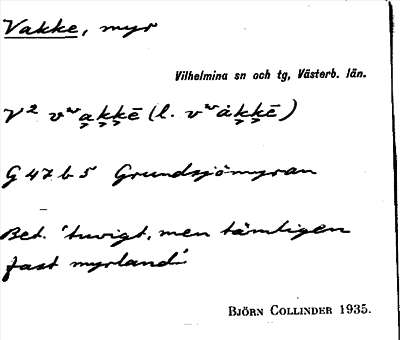 Vakke, myr
Vilhelmina sn och tg, Västerb. län.
V² vʷạḳḳē (l. vʷȧḳḳē)
G 47 b 5 Grundsjömyran
Bet. 'tuvigt, men tämligen
fast myrland.'
BJÖRN COLLINDER 1935.